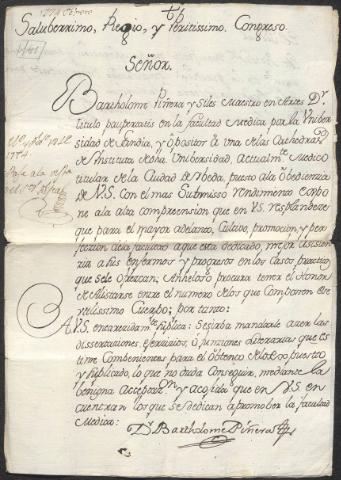 1774 Febrero
Saluberrimo, Regio, y Peritissimo. Congreso.
Señor.
Bartholome Piñera y Siles Maestro en Artes Dr.
titulo pauperatis en la facultad Medica por la Univer
sidad de Gandia, y opositor à una de las Cathedras
de Instituta de dha Universidad, actualmte Medico
titular de la Ciudad de Ubeda, puesto a la obediencia
de V.S. Con el mas Submisso rendimiento expo
ne a la alta comprehension que en V.S. resplandece
que para el mayor adelanto, Cultivo, promocion, y per
feccion de la facultad a que esta dedicado, mejor asistencia
a sus enfermos y progresos en los Casos practicos
que se le ofrezcan; Anhela procura tener el Honor
de Alistarse entre el numero de los que Componen este
utilissimo Cuerpo; por tanto:
A V.S. encarecidamte suplica: Se sirba mandarle aver las
dissertaciones, Exercicios, ò funciones Literarias que es
time Combenientes para el obtenco de lo expuesto
y suplicado, lo que no duda Conseguir, mediante la
benigna Acceptacon y acojida que en V.S. en
cuentran los que se dedican à promover la facultad
Medica:
Dr. Bartholome Piñera
Md y Febo 10 de
1774.